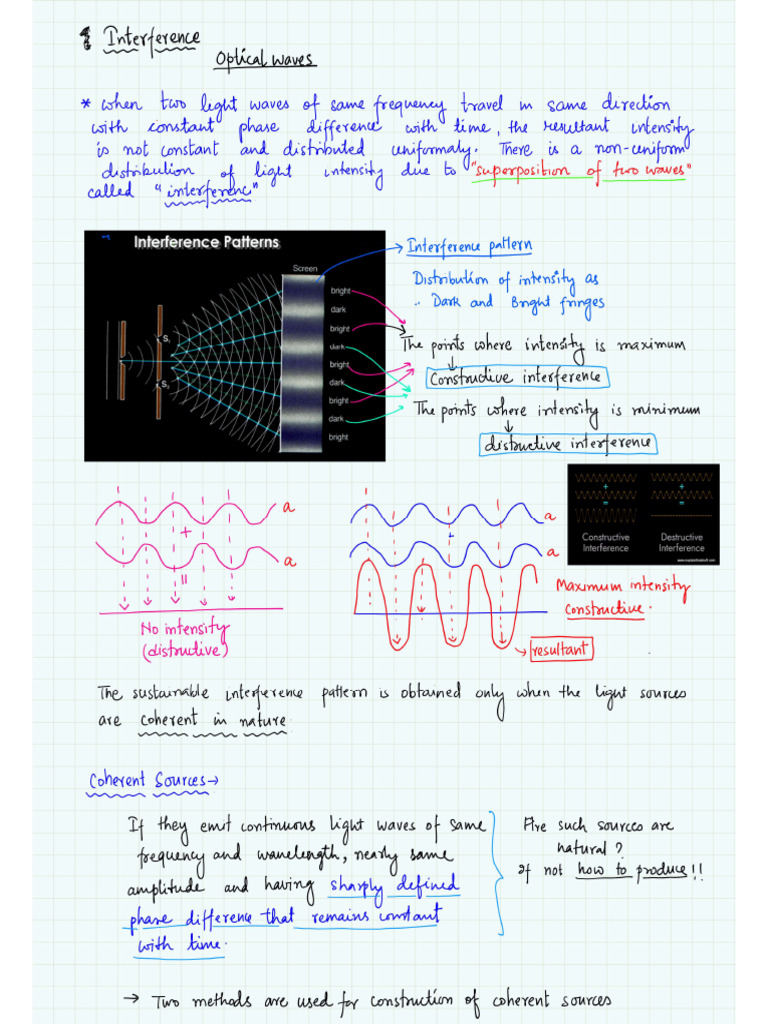 Interference
Optical waves
* when two light waves of same frequency travel in same direction
with constant phase difference with time, the resultant intensity
is not constant and distributed uniformaly. There is a non-uniform
distribution of light intensity due to "superposition of two waves"
called "interferenc"
Interference Patterns
Screen
bright
dark
bright
dark
bright
dark
bright
dark
bright
S₁
S₂
→ Interference pattern
Distribution of intensity as
Dark and Bright fringes
The points where intensity is maximum
Constructive interference
The points where intensity is minimum
distructive interference
a
+
a
=
No intensity
(distructive)
a
+
a
Maximum intensity
constructive.
→ resultant
+
=
Constructive
Interference
+
=
Destructive
Interference
The sustainable interference pattern is obtained only when the light sources
are coherent in nature
Coherent Sources →
If they emit continuous light waves of same
frequency and wavelength, nearly same
amplitude and having sharply defined
phase difference that remains constant
with time.
Are such sources are
natural?
If not how to produce!!
→ Two methods are used for construction of coherent sources